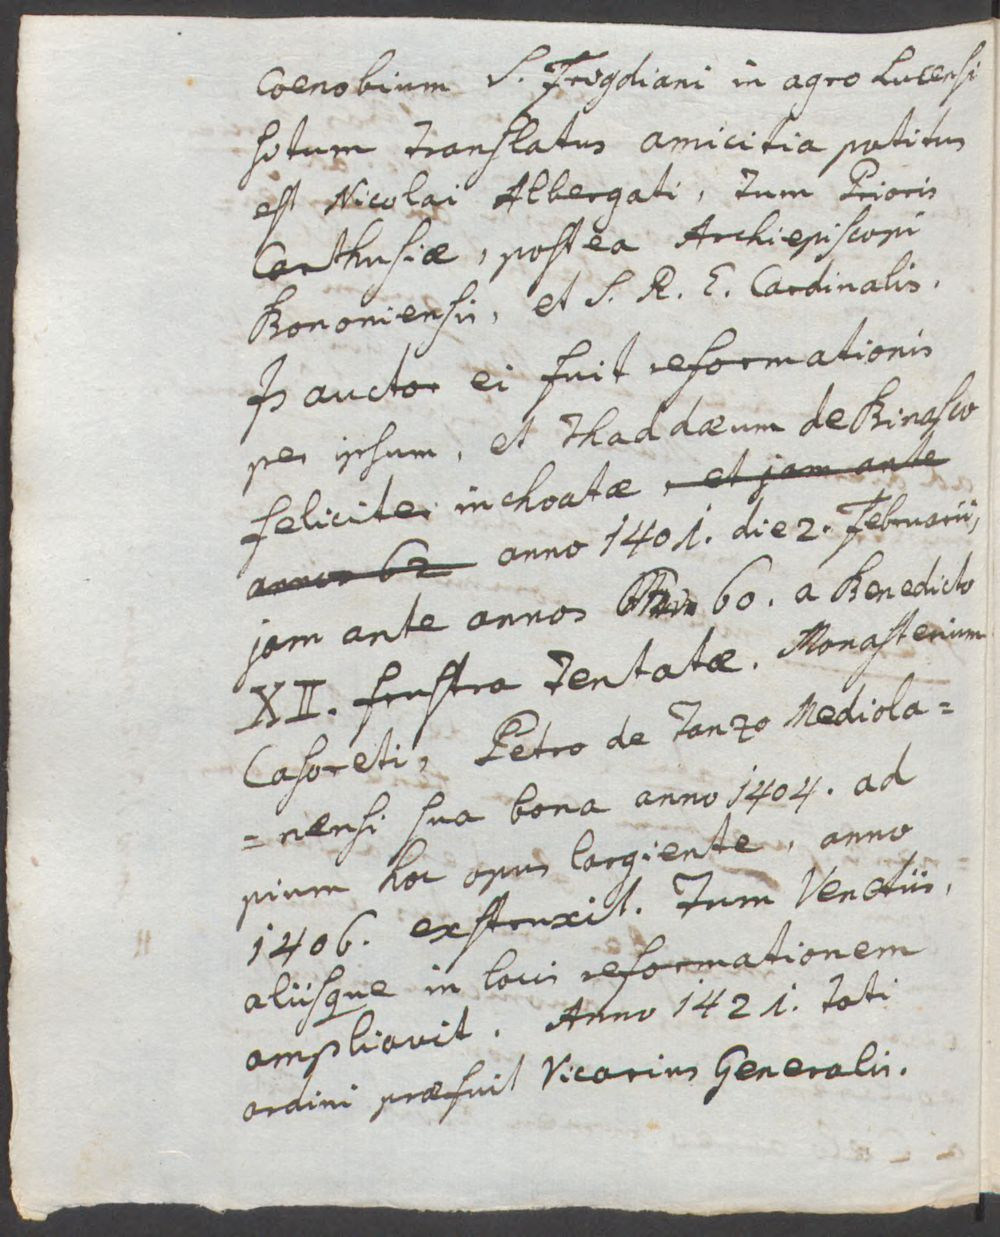 Coenobium S. Frigdiani in agro Lucensi
situm translatus amicitia potitus
est Nicolai Albergati, tum Prioris
Carthusiæ, postea Archiepiscopi
Bononiensis, et S. R. E. Cardinalis.
Is auctor ei fuit reformationis
per ipsum, et Thaddæum de Binasco
feliciter inchoatæ, et jam ante
annos 62 anno 1401. die 2. Februarii,
jam ante annos 60. a Benedicto
XII. frustra tentatæ. Monasterium
Casoreti, Petro de Tanzo Mediola=
=nensi sua bona anno 1404. ad
pium hoc opus largiente, anno
1406. exstruxit. Tum Venetiis,
aliisque in locis reformationem
ampliavit. Anno 1421. toti
ordini præfuit Vicarius Generalis.